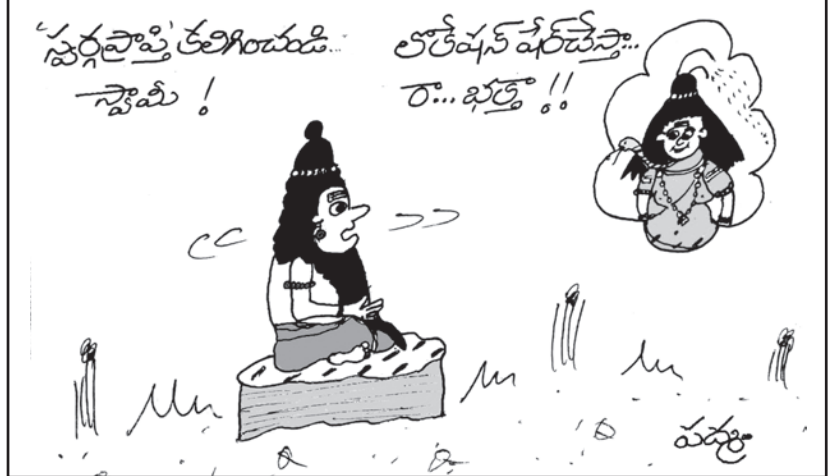 'స్వర్గప్రాప్తి' కలిగించండి...
స్వామీ !
లొకేషన్ షేర్‌చేస్తా...
రా... భక్తా !!
పద్మ